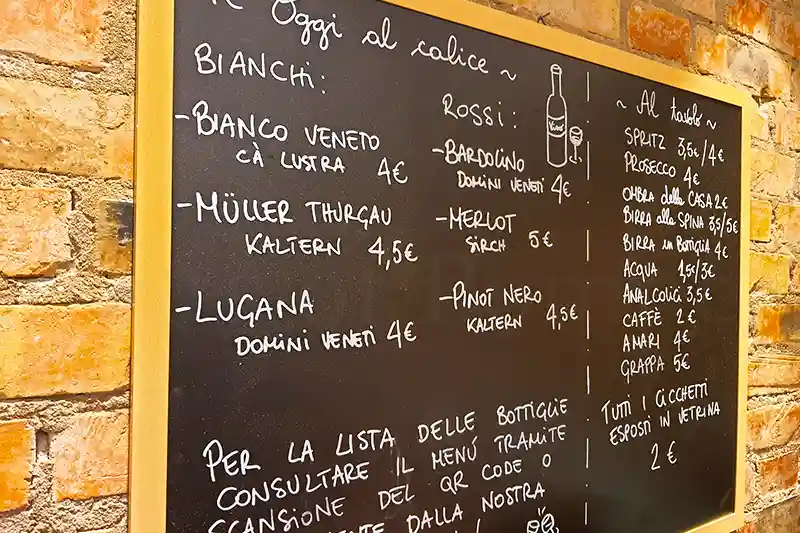 Oggi al calice ~
BIANCHI:
-BIANCO VENETO
CÀ LUSTRA 4€
-MÜLLER THURGAU
KALTERN 4,5€
-LUGANA
DOMINI VENETI 4€
ROSSI:
-BARDOLINO
DOMINI VENETI 4€
-MERLOT
SIRCH 5€
-PINOT NERO
KALTERN 4,5€
PER LA LISTA DELLE BOTTIGLIE
CONSULTARE IL MENÚ TRAMITE
SCANSIONE DEL QR CODE O
DALLA NOSTRA
~ Al tavolo ~
SPRITZ 3,5€/4€
PROSECCO 4€
OMBRA della CASA 2€
BIRRA alla SPINA 3,5/5€
BIRRA in BOTTIGLIA 4€
ACQUA 1,5€/3€
ANALCOLICI 3,5€
CAFFÈ 2€
AMARI 4€
GRAPPA 5€
TUTTI I CICCHETTI
ESPOSTI IN VETRINA
2€